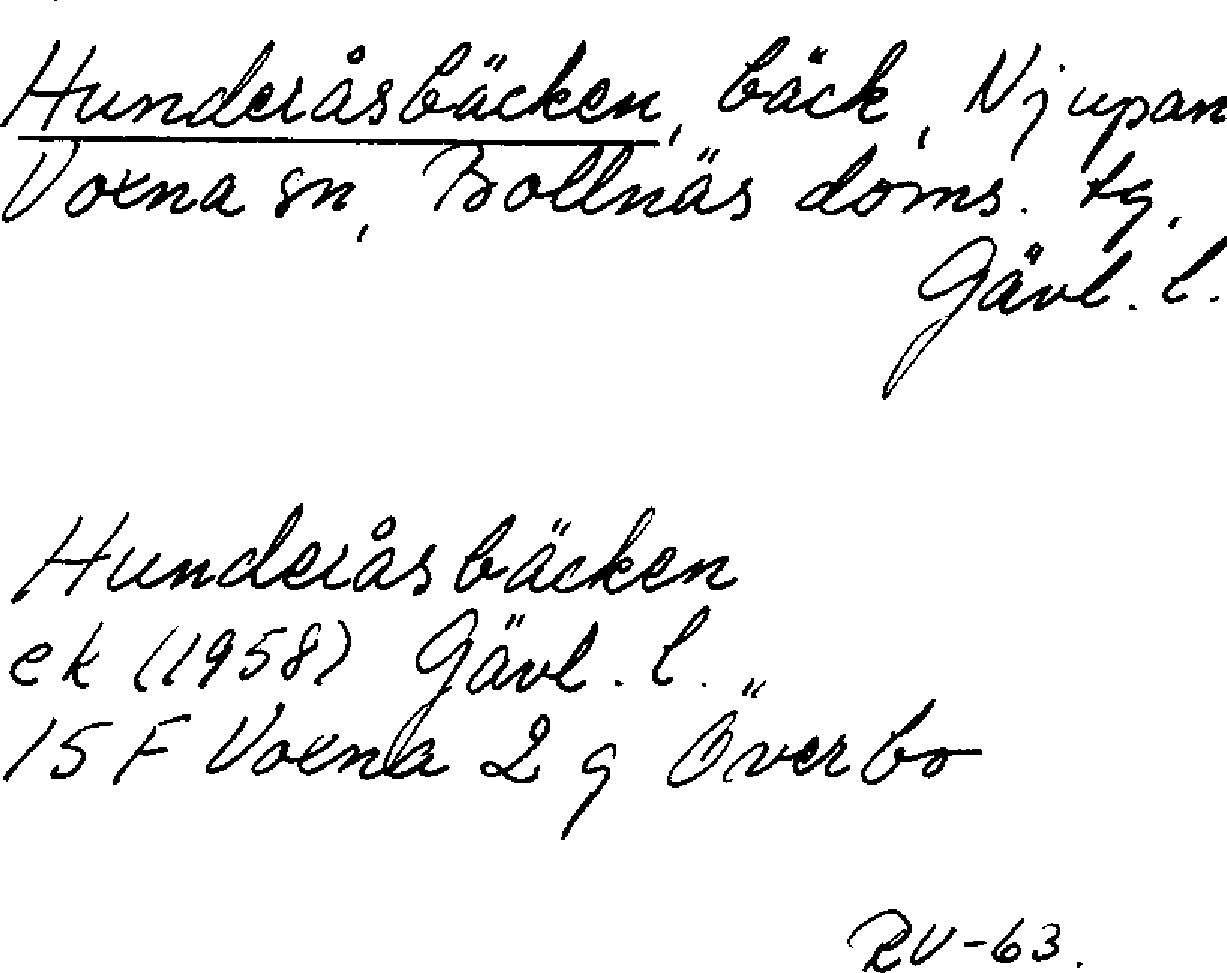 Hunderåsbäcken, bäck, Njupan
Voxna sn, Bollnäs doms. tg.
Gävl. l.
Hunderåsbäcken
ek (1958) Gävl. l.
15 F Voxna 2 g Överbo
RV-63.